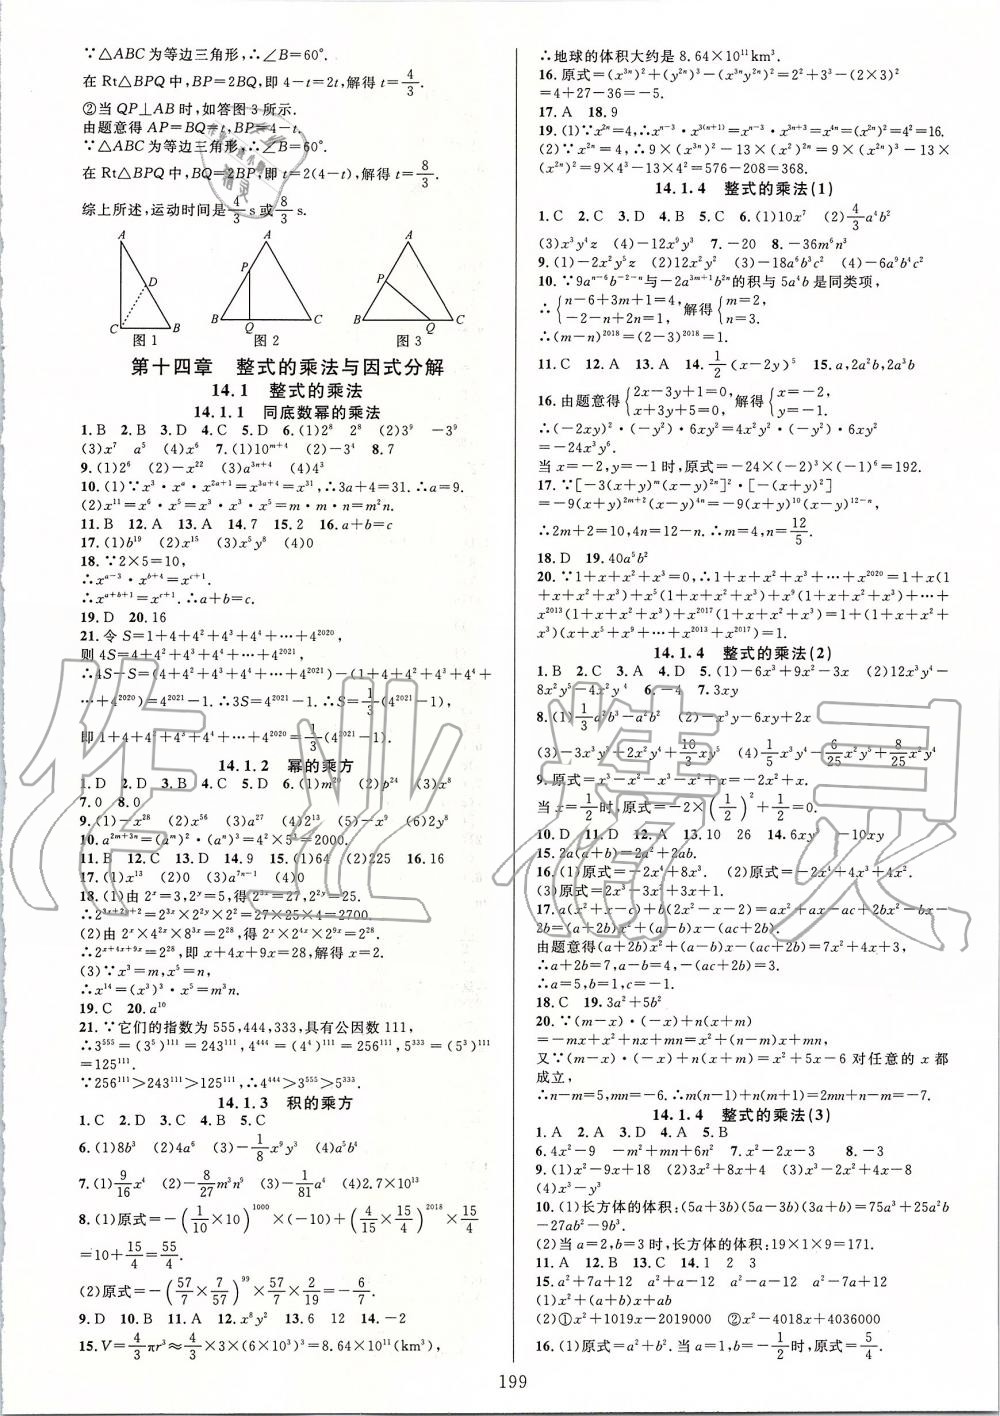 ∵△ABC为等边三角形,∴∠B=60°.
在Rt△BPQ中,BP=2BQ,即4-t=2t,解得t=4/3
②当QP⊥AB时,如答图3所示.
由题意得AP=BQ=t,BP=4-t.
∵△ABC为等边三角形,∴∠B=60°.
在Rt△BPQ中,BQ=2BP,即t=2(4-t),解得t=8/3.
综上所述,运动时间是4/3 s或8/3 s.
A D C B 图1
A P B Q C 图2
A P B Q C 图3
第十四章 整式的乘法与因式分解
14.1 整式的乘法
14.1.1 同底数幂的乘法
1.B 2.B 3.D 4.C 5.D 6.(1)2⁸ 2⁸ (2)3⁹ -3⁹
(3)x⁷ a⁵ (4)x⁶ 7.(1)10ᵐ⁺⁴ (2)-3⁴ 8.7
9.(1)2⁶ (2)-x²² (3)a³ⁿ⁺⁴ (4)4³
10.(1)∵x³·xᵃ·x²ᵃ⁺¹=x³ᵃ⁺⁴=x³¹,∴3a+4=31.∴a=9.
(2)x¹¹=x⁶·x⁵=x³·x³·x⁵=m·m·n=m²n.
11.B 12.A 13.A 14.7 15.2 16.a+b=c
17.(1)b¹⁹ (2)x¹⁵ (3)x⁵y⁸ (4)0
18.∵2×5=10,
∴xᵃ⁻³·xᵇ⁺⁴=xᶜ⁺¹.
∴xᵃ⁺ᵇ⁺¹=xᶜ⁺¹.∴a+b=c.
19.D 20.16
21.令S=1+4+4²+4³+4⁴+…+4²⁰²⁰,
则4S=4+4²+4³+4⁴+…+4²⁰²¹,
∴4S-S=(4+4²+4³+4⁴+…+4²⁰²¹)-(1+4+4²+4³+4⁴+
…+4²⁰²⁰)=4²⁰²¹-1.∴3S=4²⁰²¹-1.∴S=1/3(4²⁰²¹-1),
即1+4+4²+4³+4⁴+…+4²⁰²⁰=1/3(4²⁰²¹-1).
14.1.2 幂的乘方
1.D 2.D 3.B 4.C 5.D 6.(1)m²⁰ (2)b²⁴ (3)x⁸
7.0 8.0
9.(1)-x²⁸ (2)x⁵⁶ (3)a²⁷ (4)2¹³ (5)-x⁹ (6)2y⁸
10.a²ᵐ⁺³ⁿ=(aᵐ)²·(aⁿ)³=4²×5³=2000.
11.B 12.C 13.D 14.9 15.(1)64 (2)225 16.16
17.(1)x¹³ (2)0 (3)a⁷ⁿ⁻¹ (4)0
18.(1)由2ˣ=3,2ʸ=5,得2³ˣ=27,2²ʸ=25.
∴2³ˣ⁺²ʸ⁺²=2³ˣ×2²ʸ×2²=27×25×4=2700.
(2)由2ˣ×4²ˣ×8³ˣ=2²⁸,得2ˣ×2⁴ˣ×2⁹ˣ=2²⁸,
∴2ˣ⁺⁴ˣ⁺⁹ˣ=2²⁸,即x+4x+9x=28,解得x=2.
(3)∵x³=m,x⁵=n,
∴x¹⁴=(x³)³·x⁵=m³n.
19.C 20.a¹⁰
21.∵它们的指数为555,444,333,具有公因数111,
∴3⁵⁵⁵=(3⁵)¹¹¹=243¹¹¹,4⁴⁴⁴=(4⁴)¹¹¹=256¹¹¹,5³³³=(5³)¹¹¹
=125¹¹¹.
∵256¹¹¹>243¹¹¹>125¹¹¹,∴4⁴⁴⁴>3⁵⁵⁵>5³³³.
14.1.3 积的乘方
1.C 2.D 3.C 4.B 5.C
6.(1)8b³ (2)4a⁶ (3)-1/8x⁹y³ (4)3a⁴b²
7.(1)9/16x⁴ (2)-8/27m³n⁹ (3)-1/81a⁴ (4)2.7×10¹³
8.(1)原式=-(1/10×10)¹⁰⁰⁰×(-10)+(4/15×15/4)²⁰¹⁸×15/4
=10+15/4=55/4.
(2)原式=-(57/7×7/57)⁹⁹×57/7×7/2×2/19=-57/19=-3.
9.D 10.B 11.A 12.x⁸y² 13.6 12 14.-2
15.V=4/3πr³≈4/3×3×(6×10³)³=8.64×10¹¹(km³),
∴地球的体积大约是8.64×10¹¹km³.
16.原式=(x³ⁿ)²+(y²ⁿ)³-(x³ⁿy²ⁿ)²=2²+3³-(2×3)²
=4+27-36=-5.
17.A 18.9
19.(1)∵x²ⁿ=4,∴xⁿ⁻³·x³⁽ⁿ⁺¹⁾=xⁿ⁻³·x³ⁿ⁺³=x⁴ⁿ=(x²ⁿ)²=4²=16.
(2)∵x²ⁿ=4,∴9(x³ⁿ)²-13(x²)²ⁿ=9(x²ⁿ)³-13(x²ⁿ)²=
9×4³-13×4²=576-208=368.
14.1.4 整式的乘法(1)
1.C 2.C 3.D 4.B 5.C 6.(1)10x⁷ (2)4/3a⁴b²
(3)x³y⁴z (4)-12x⁹y³ 7.-20 8.-36m⁶n³
9.(1)-2x²y⁵z (2)12x²y² (3)-18a⁶b³c² (4)-6a⁹b⁴c²
10.∵9aⁿ⁻⁶b⁻²⁻ⁿ与-2a³ᵐ⁺¹b²ⁿ的积与5a⁴b是同类项,
∴{n-6+3m+1=4, -2-n+2n=1, 解得{m=2, n=3.
∴(m-n)²⁰¹⁸=(2-3)²⁰¹⁸=1.
11.C 12.A 13.A 14.1/2(x-2y)⁵ 15.a,2a²b,2a³b
16.由题意得{2x-3y+1=0, x+3y+5=0, 解得{x=-2, y=-1.
∴(-2xy)²·(-y²)·6xy²=4x²y²·(-y²)·6xy²
=-24x³y⁶.
当x=-2,y=-1时,原式=-24×(-2)³×(-1)⁶=192.
17.∵[-3(x+y)ᵐ(x-y)²ⁿ]²·[-(x+y)²]
=-9(x+y)²ᵐ⁺²(x-y)⁴ⁿ=-9(x+y)¹⁰(x-y)¹²⁻ⁿ,
∴2m+2=10,4n=12-n.∴m=4,n=12/5.
18.D 19.40a⁵b²
20.∵1+x+x²+x³=0,∴1+x+x²+x³+…+x²⁰²⁰=1+x(1
+x+x²+x³)+x⁵(1+x+x²+x³)+x⁹(1+x+x²+x³)+…+
x²⁰¹³(1+x+x²+x³)+x²⁰¹⁷(1+x+x²+x³)=1+(1+x+x²+
x³)(x+x⁵+x⁹+…+x²⁰¹³+x²⁰¹⁷)=1.
14.1.4 整式的乘法(2)
1.B 2.C 3.D 4.D 5.(1)-6x³+9x²-3x (2)12x³y⁴-
8x²y⁵-4x²y⁴ 6.-4 7.3xy
8.(1)1/3a²b³-a²b² (2)-x³y-6xy+2x
(3)-3x³y⁵-2x²y⁴+10/3xy⁵ (4)1/5x³y-6/25x²y³+8/25x²y⁴
9.原式=x³-x²-x³-x²+x=-2x²+x.
当x=1/2时,原式=-2×(1/2)²+1/2=0.
10.D 11.D 12.A 13.10 26 14.6xy -10xy
15.2a(a+b)=2a²+2ab.
16.(1)原式=-2x⁴+8x³. (2)原式=-2x⁴+4x³+4x².
(3)原式=2x³-3x²+3x+1.
17.a(x²+x-c)+b(2x²-x-2)=ax²+ax-ac+2bx²-bx-
2b=(a+2b)x²+(a-b)x-(ac+2b).
由题意得(a+2b)x²+(a-b)x-(ac+2b)=7x²+4x+3,
∴a+2b=7,a-b=4,-(ac+2b)=3.
∴a=5,b=1,c=-1.
18.C 19.3a²+5b²
20.∵(m-x)·(-x)+n(x+m)
=-mx+x²+nx+mn=x²+(n-m)x+mn,
又∵(m-x)·(-x)+n(x+m)=x²+5x-6对任意的x都
成立,
∴n-m=5,mn=-6.∴m(n-1)+n(m+1)=2mn+n-m=-7.
14.1.4 整式的乘法(3)
1.A 2.A 3.D 4.A 5.B
6.4x²-9 -m²+mn+6n² 7.x²-2x-3 8.-3
9.(1)x²-9x+18 (2)3x²+8x+4 (3)4x²+4x-8
(4)x³-y³
10.(1)长方体的体积:(5a+3b)(5a-3b)(3a+b)=75a³+25a²b
-27ab²-9b³.
(2)当a=2,b=3时,长方体的体积:19×1×9=171.
11.A 12.B 13.C 14.1 2 3
15.a²+7a+12 a²+a-12 a²-a-12 a²-7a+12
(1)x²+(a+b)x+ab
(2)①x²+1019x-2019000 ②x²-4018x+4036000
16.(1)原式=2x²-x-2x²+x-4x+6x-3=2x-3
199